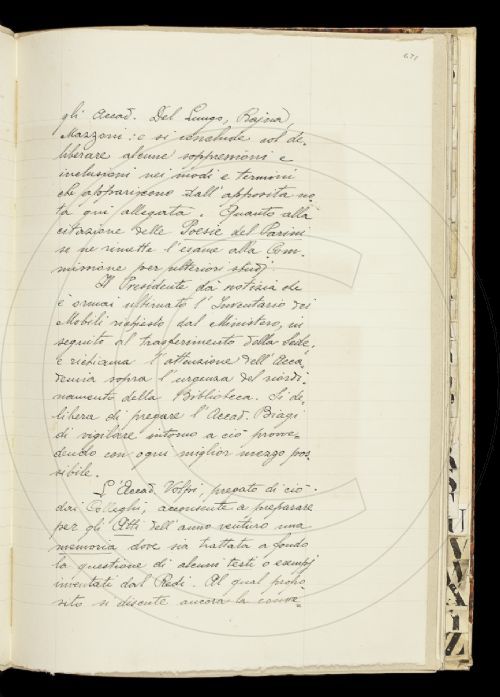 671
gli Accad. Del Lungo, Rajna,
Mazzoni: e si conclude col de-
liberare alcune soppressioni e
inclusioni nei modi e termini
che appariscono dall'apposita no-
ta qui allegata. Quanto alla
citazione delle Poesie del Parini
se ne rimette l'esame alla Com-
missione per ulteriori studj.
Il Presidente dà notizia che
è ormai ultimato l'Inventario dei
Mobili richiesto dal Ministero, in
seguito al trasferimento della Sede,
e richiama l'attenzione dell'Acca-
demia sopra l'urgenza del riordi-
namento della Biblioteca. Si de-
libera di pregare l'Accad. Biagi
di vigilare intorno a ciò provve-
dendo con ogni miglior mezzo pos-
sibile.
L'Accad. Volpi, pregato di ciò
dai Colleghi, acconsente a preparare
per gli Atti dell'anno venturo una
memoria dove sia trattata a fondo
la questione di alcuni testi o esempj
inventati dal Redi. Al qual propo-
sito si discute ancora la conve-